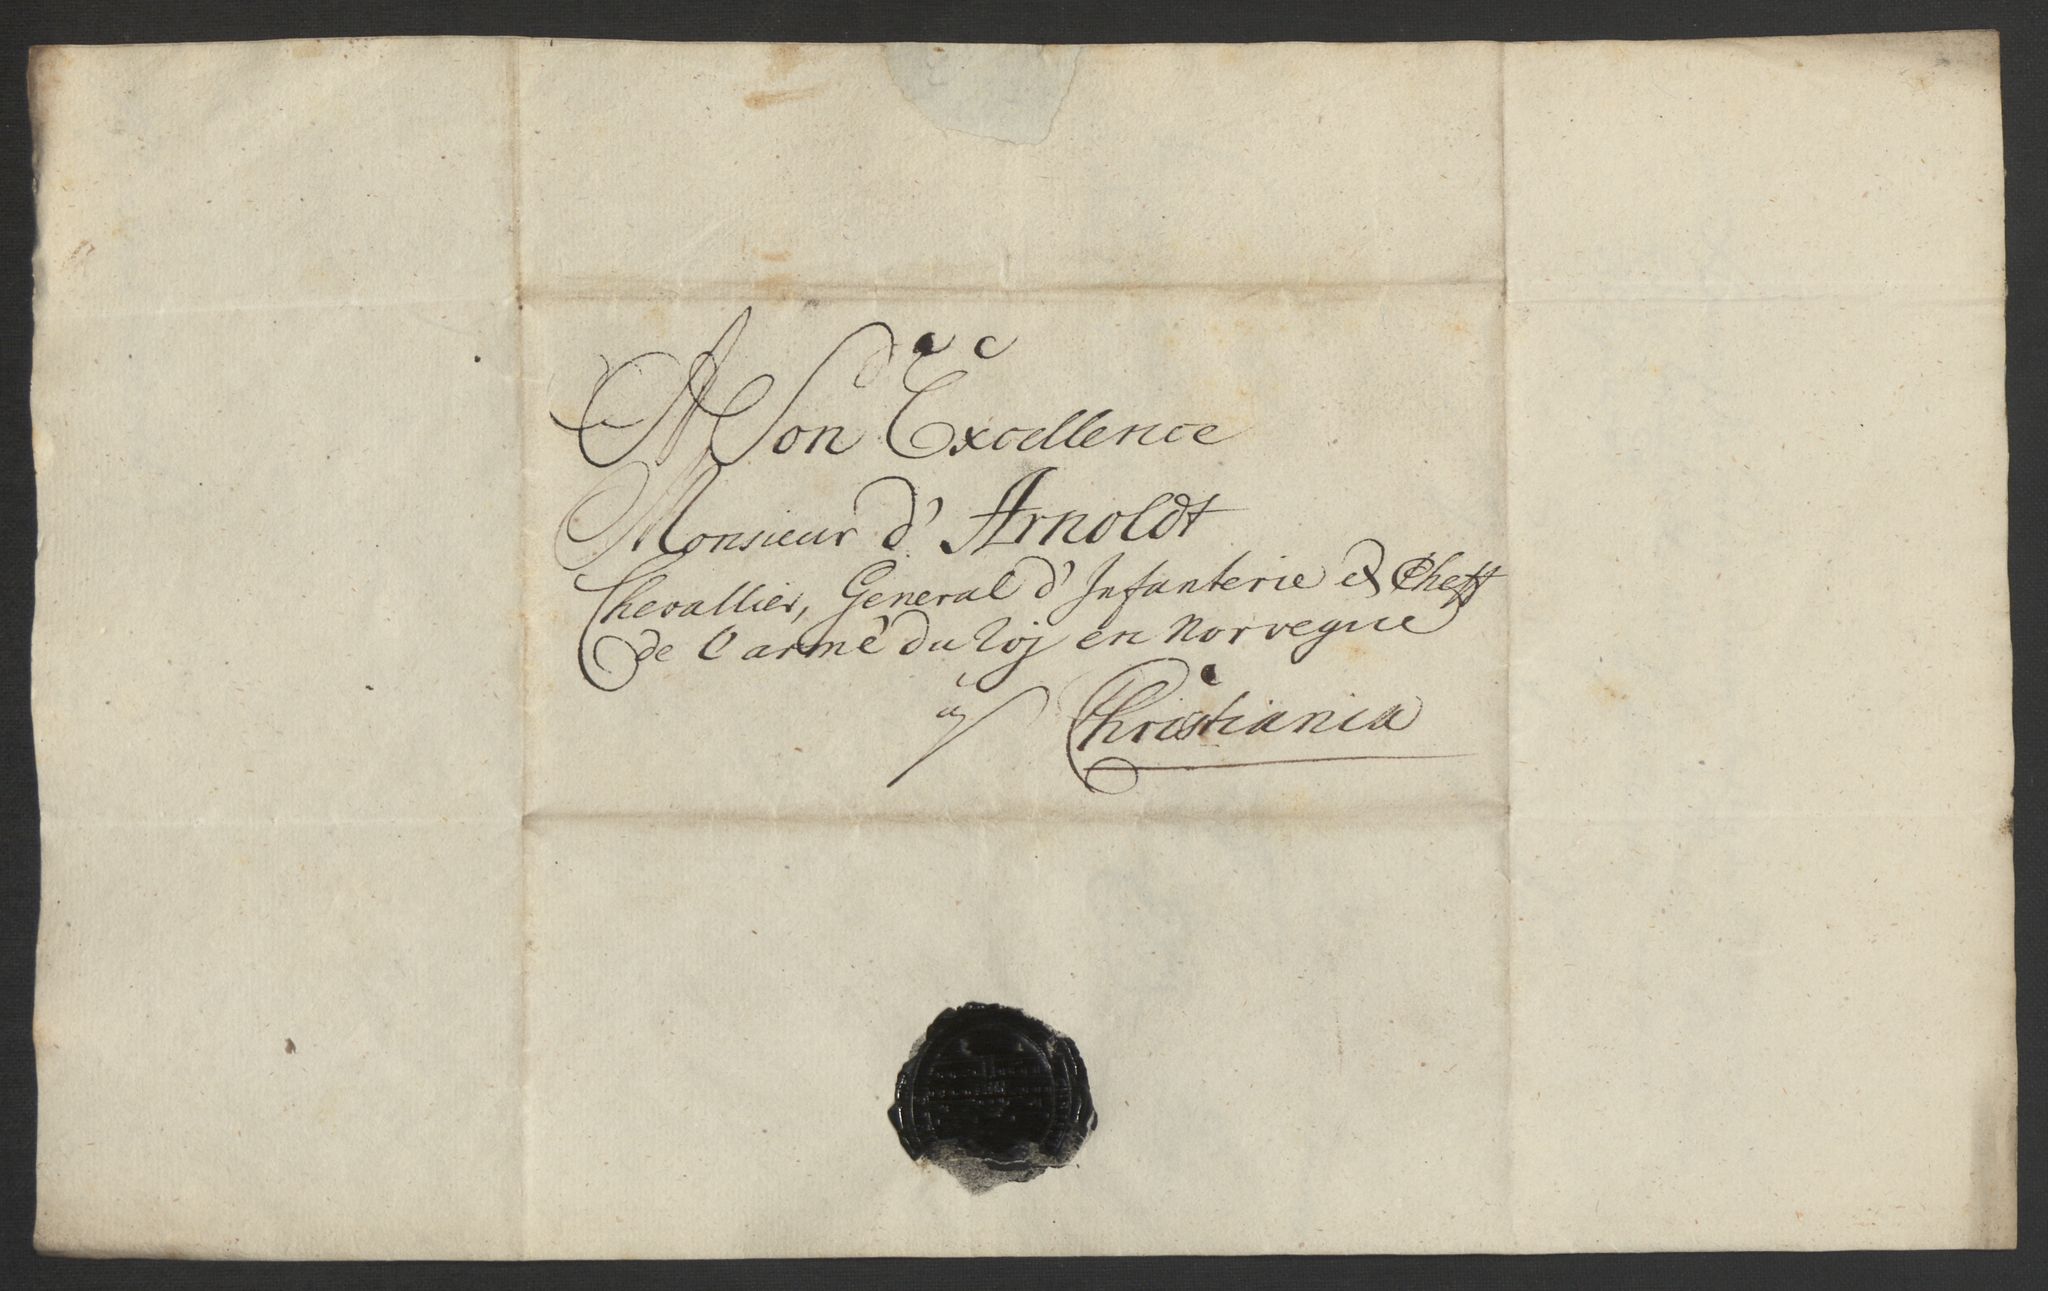 A Son Excellence
Monsieur d' Arnoldt
Chevallier, General d' Infanterie & Cheff
de l'armê du roj en Norvegue
à Christiania